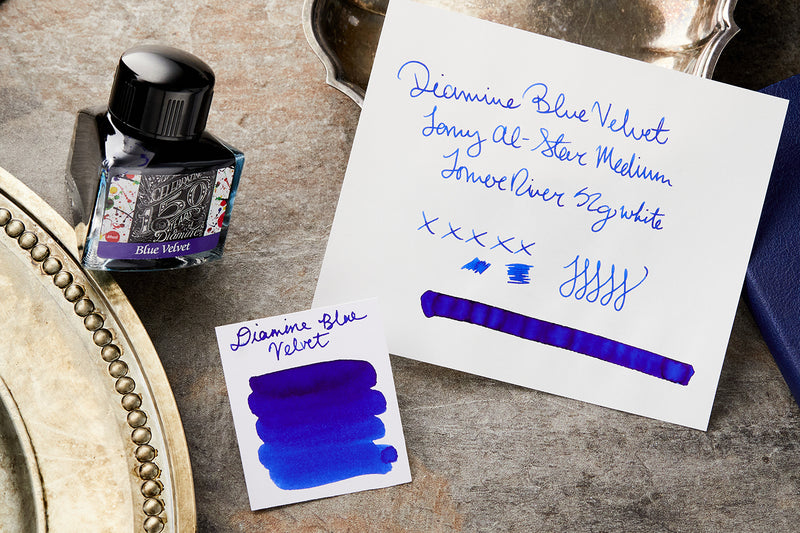 CELEBRATING
150
YEARS
Diamine
Blue Velvet
Diamine Blue Velvet
Lamy Al-Star Medium
Tomoe River 52g, white
x x x x x
Diamine Blue
Velvet